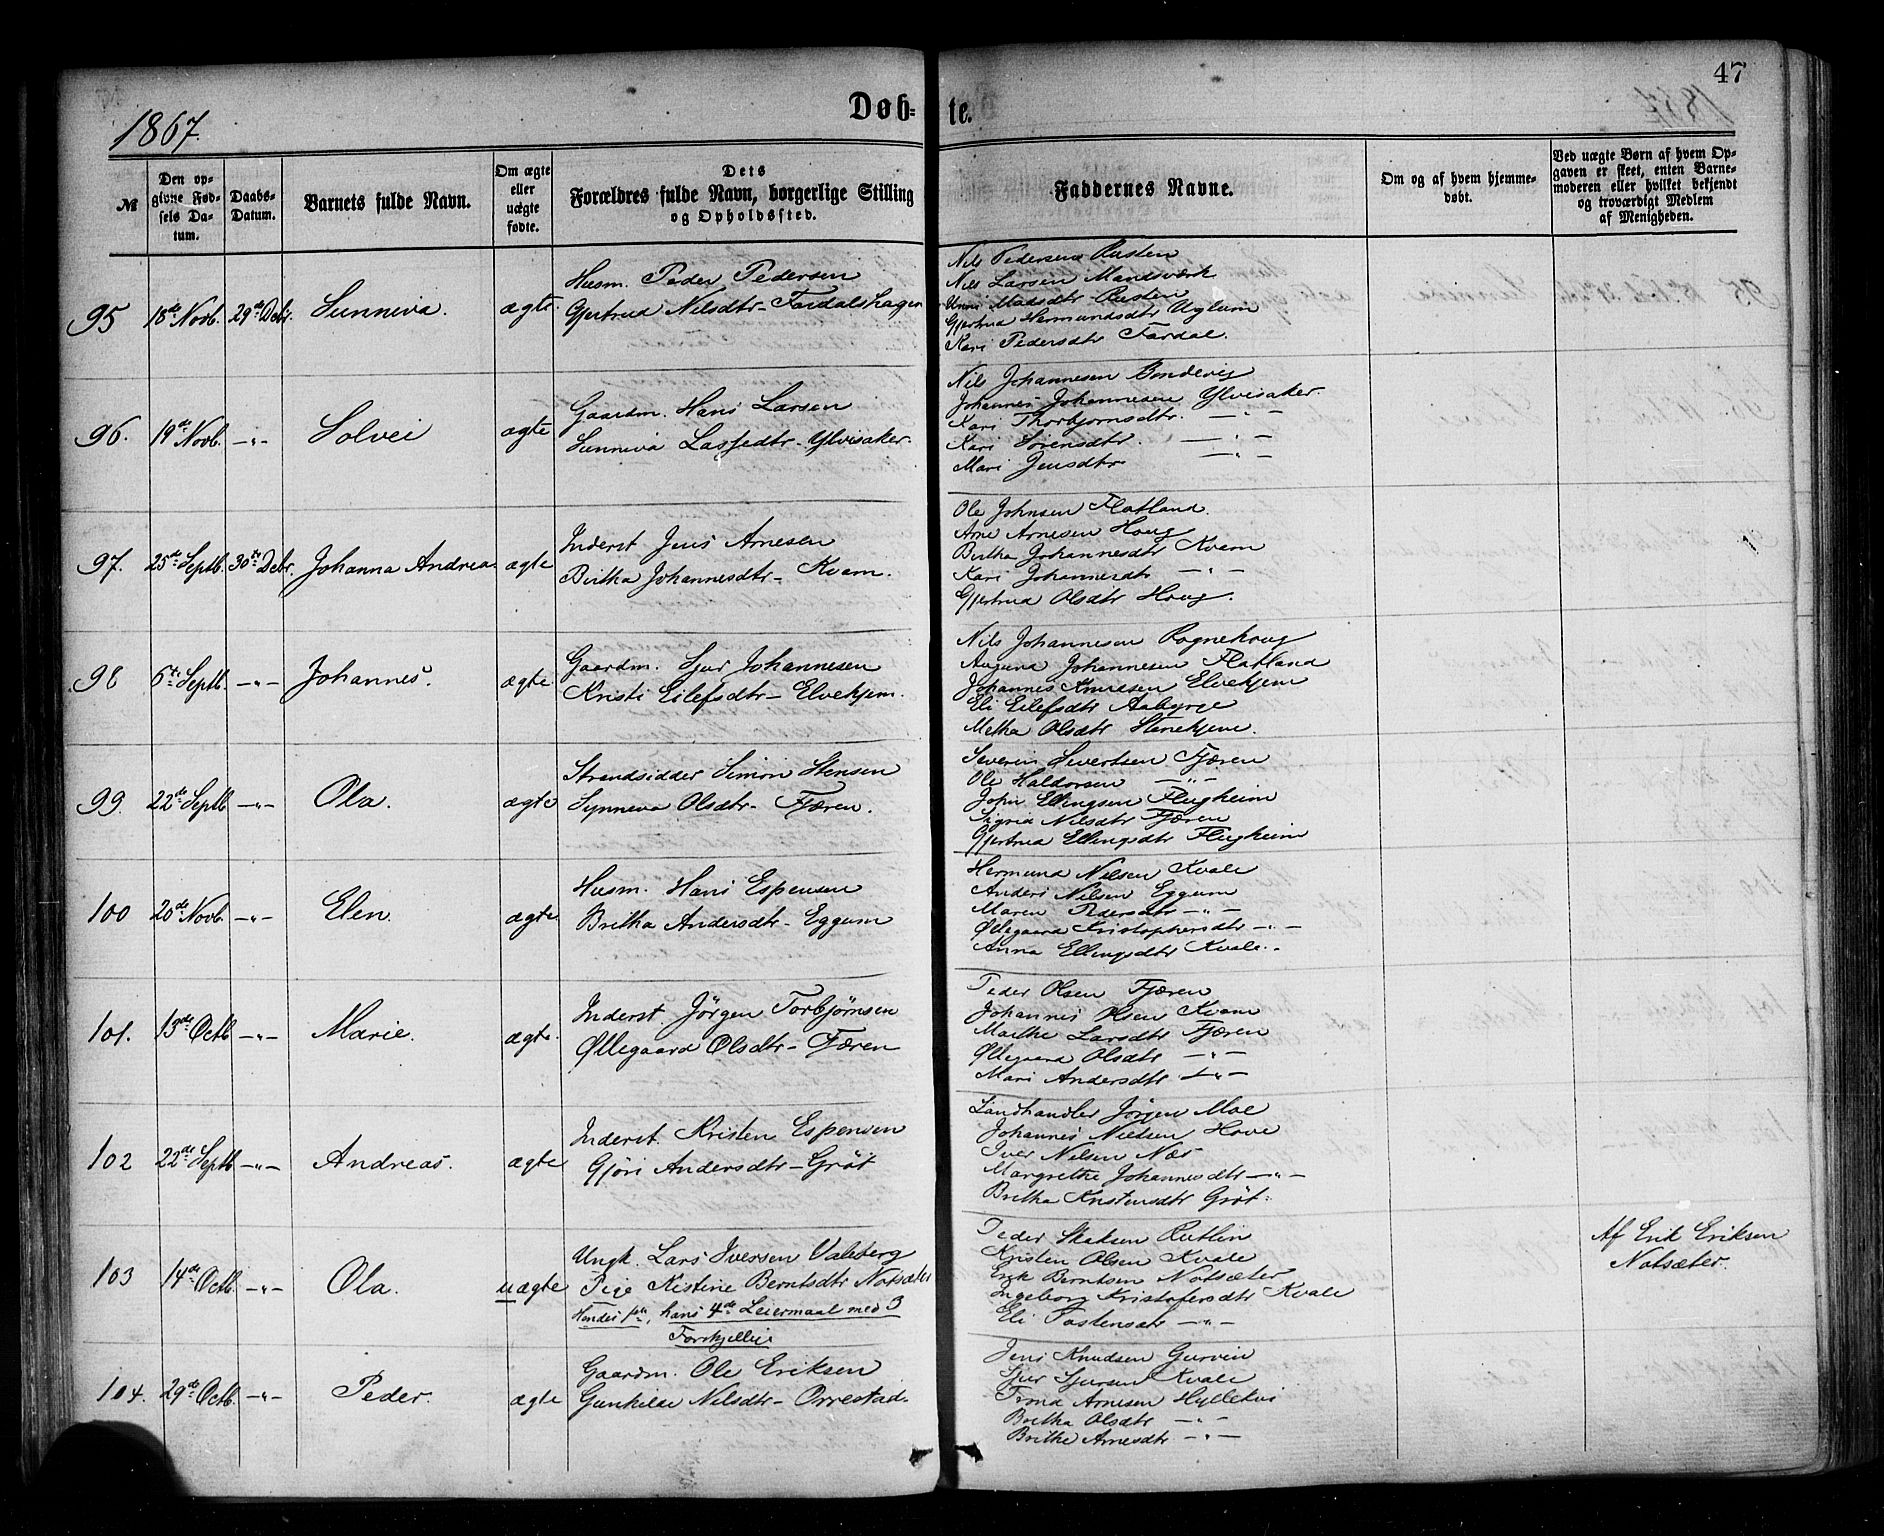 47
1867.
Døbte.
№
Den opgivne Fødsels Datum.
Daabs-Datum.
Barnets fulde Navn.
Om ægte eller uægte fødte.
Dets Forældres fulde Navn, borgerlige Stilling og Opholdssted.
Faddernes Navne.
Om og af hvem hjemmedøbt.
Ved uægte Børn af hvem Opgaven er skeet, enten Barnemoderen eller hvilket bekjendt og troværdigt Medlem af Menigheden.
95 18de Novb. 29de Debr. Sunneva. ægte
Husm. Peder Pedersen
Gjertrud Nilsdtr - Fardalshagen
Nils Pedersen Rusten
Nils Larsen Mandsværk
Unni Madsdtr Rusten
Gjertrud Hermundsdtr Uglum
Kari Pedersdtr Fardal.
96. 19de Novb. -"- Solvei ægte
Gaardm. Hans Larsen
Sunneva Lassedtr - Ylvisaker.
Nils Johannesen Bondevig
Johannes Johannesen Ylvisaker.
Kari Thorbjørnsdtr. -"-
Kari Sørensdtr. -"-
Mari Jensdtr -"-
97. 25de Septb. 30te Debr. Johanna Andrea. ægte
Inderst Jens Arnesen
Britha Johannesdtr - Kvam.
Ole Johnsen Flatland.
Arne Arnesen Houg
Britha Johannesdtr Kvam
Kari Johannesdtr -"-
Gjertrud Olsdtr Houg.
98 6te Septb. -"- Johannes. ægte
Gaardm. Sjur Johannesen
Kristi Eilefsdtr - Elvekjem.
Nils Johannesen Rognehoug
Augund Johannesen Flatland
Johannes Knudsen Elvekjem
Eli Eilefsdtr Aabjørge
Metha Olsdtr Stenekjem.
99. 22de Septb -"- Ola. ægte
Strandsidder Simon Stensen
Synneva Olsdtr - Fjæren.
Severin Sivertsen Fjæren
Ole Haldorsen -"-
John Ellingsen Flugheim
Sigrid Nilsdtr Fjæren
Gjertrud Ellingsdtr Flugheim
100 20de Novb. -"- Elen. ægte
Husm. Hans Espensen
Britha Andersdtr - Eggum
Hermund Nilsen Kvale
Anders Nilsen Eggum
Maren Pedersdtr -"-
Øllegaard Kristophersdtr -"-
Anna Ellingsdtr Kvale.
101. 13de Octb -"- Marie. ægte.
Inderst Jörgen Torbjørnsen
Øllegaard Olsdtr - Fjæren
Peder Olsen Fjæren
Johannes Olsen Kvam
Marthe Larsdtr Fjæren
Øllegaard Olsdtr -"-
Mari Andersdtr -"-
102 22de Septb -"- Andreas. ægte
Inderst. Kristen Espensen
Gjöri Andersdtr - Gröt
Landhandler Jörgen Moe
Johannes Nielsen Hove
Iver Nilsen Næs
Margrethe Johannesdtr -"-
Britha Kristensdtr Gröt.
103 14de Octb. -"- Ola. uægte
Ungk. Lars Iversen Valeberg
Pige Kistine Berntsdtr Notsæter
Hendes 1ste, hans 4de Leiermaal med 3
Forskjellige
Peder Staksen Rutlin
Kristen Olsen Kvale
Erik Berntsen Notsæter
Ingeborg Kristofersdtr Kvale
Eli Tostensdtr -"-
Af Erik Eriksen
Notsæter.
104. 29de Octb. -"- Peder. ægte
Gaardm. Ole Eriksen
Gunhilde Nilsdtr - Orrestad.
Jens Knudsen Gurvin
Sjur Sjursen Kvale
Trond Arnesen Hylletvi
Britha Olsdtr -"-
Brithe Arnesdtr -"-